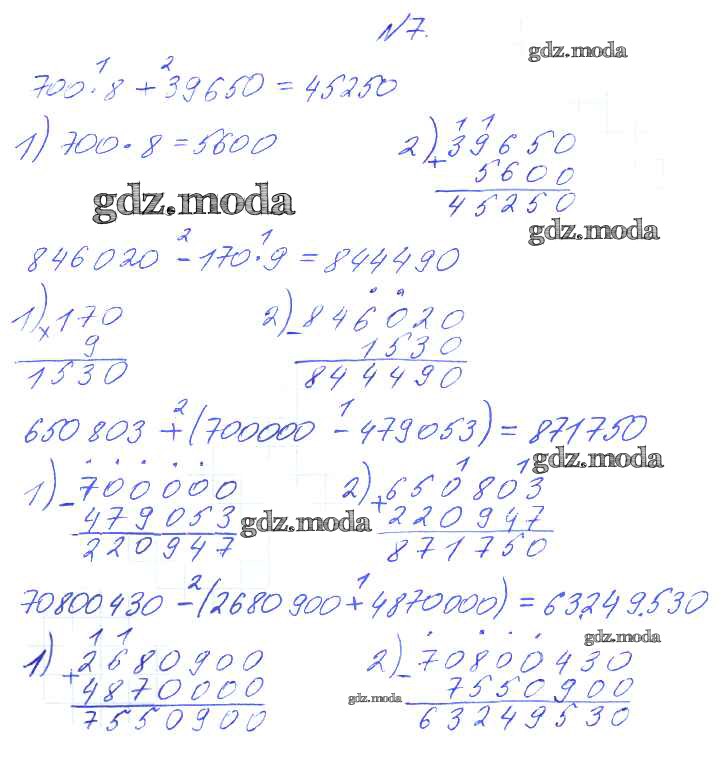 №7.
gdz.moda
700·8 + 39650 = 45250
1 2
1) 700·8 = 5600
2) 39650
+ 5600
45250
1 1
gdz.moda
gdz.moda
846020 - 170·9 = 844490
2 1
1) 170
× 9
1530
2) 846020
- 1530
844490
650803 + (700000 - 479053) = 871750
2 1
gdz.moda
1) 700000
- 479053
220947
gdz.moda
2) 650803
+ 220947
871750
1 1
70800430 - (2680900 + 4870000) = 63249530
2 1
gdz.moda
1) 2680900
+ 4870000
7550900
1 1
2) 70800430
- 7550900
63249530
gdz.moda